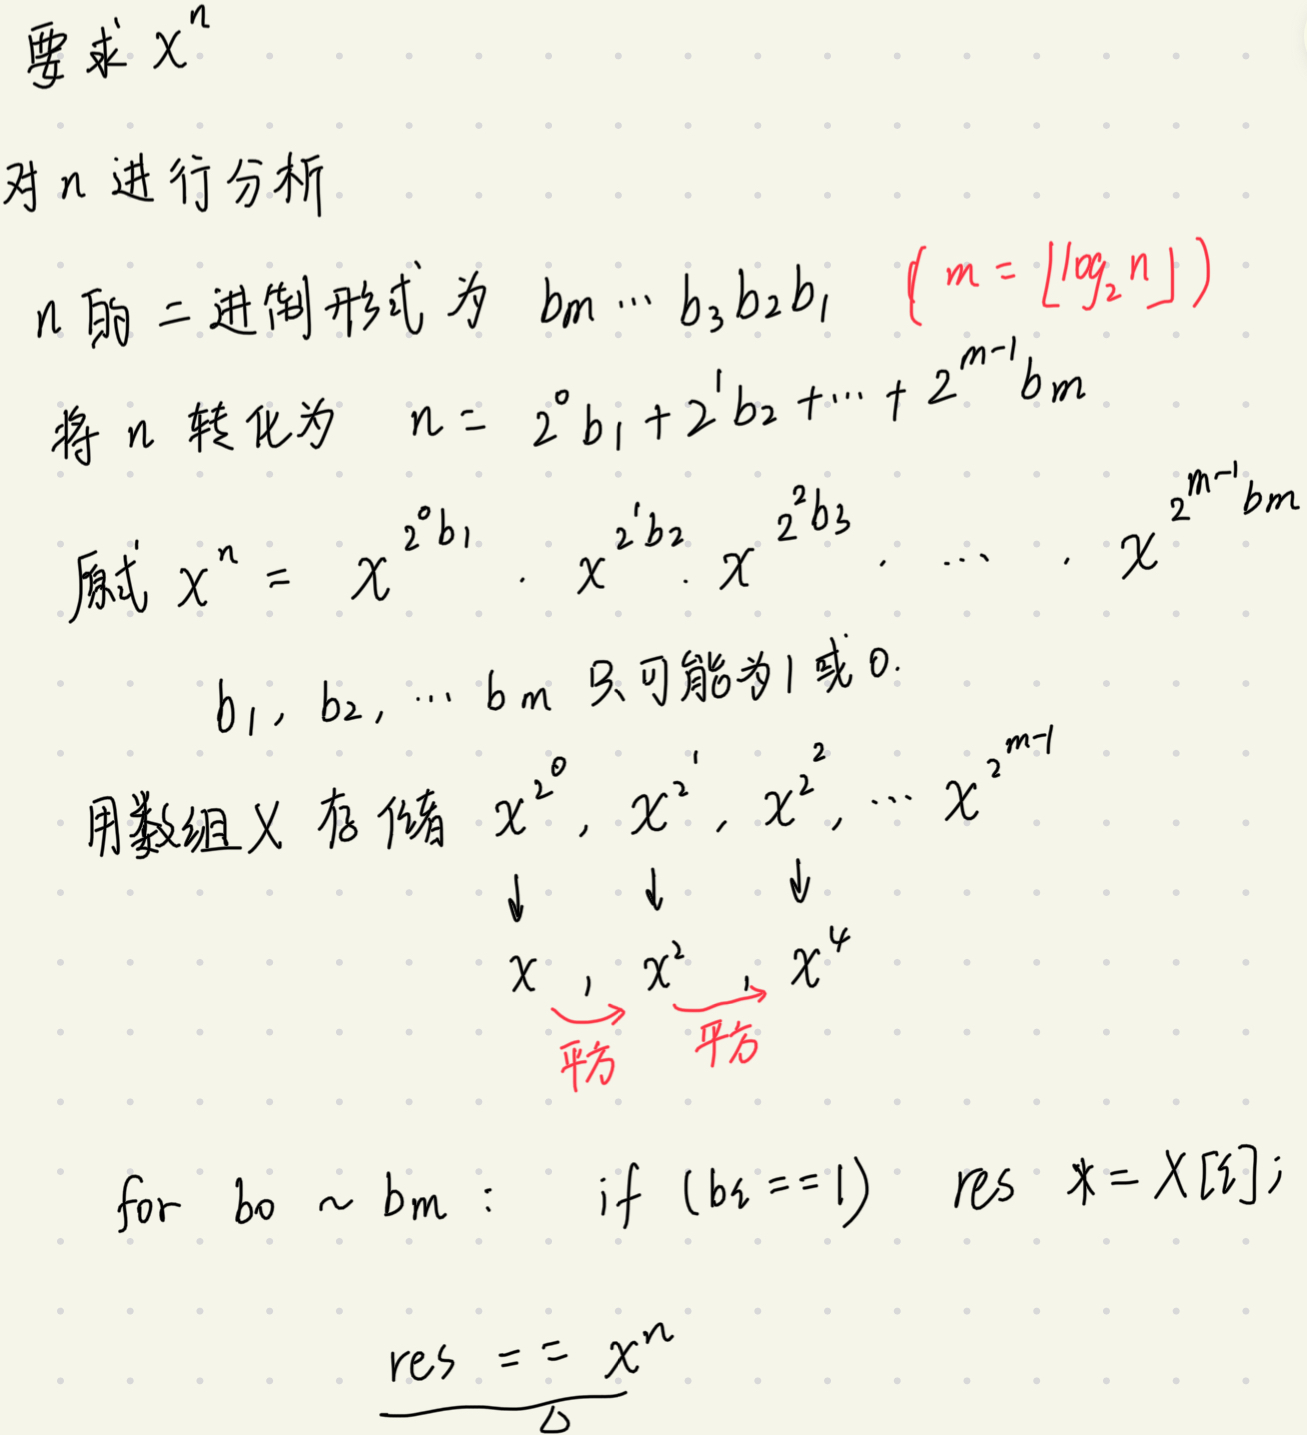 要求 xⁿ
对 n 进行分析
n 的二进制形式为 bm … b₃b₂b₁ (m = ⌊log₂n⌋)
将 n 转化为 n = 2⁰b₁ + 2¹b₂ + … + 2^{m-1}bm
原式 xⁿ = x^{2⁰b₁} · x^{2¹b₂} · x^{2²b₃} · … · x^{2^{m-1}bm}
b₁, b₂, … bm 只可能为 1 或 0.
用数组 X 存储 x^{2⁰}, x^{2¹}, x^{2²}, … x^{2^{m-1}}
↓ ↓ ↓
x , x² , x⁴
平方 平方
for b₀ ~ bm : if (bi == 1) res *= X[i];
res == xⁿ